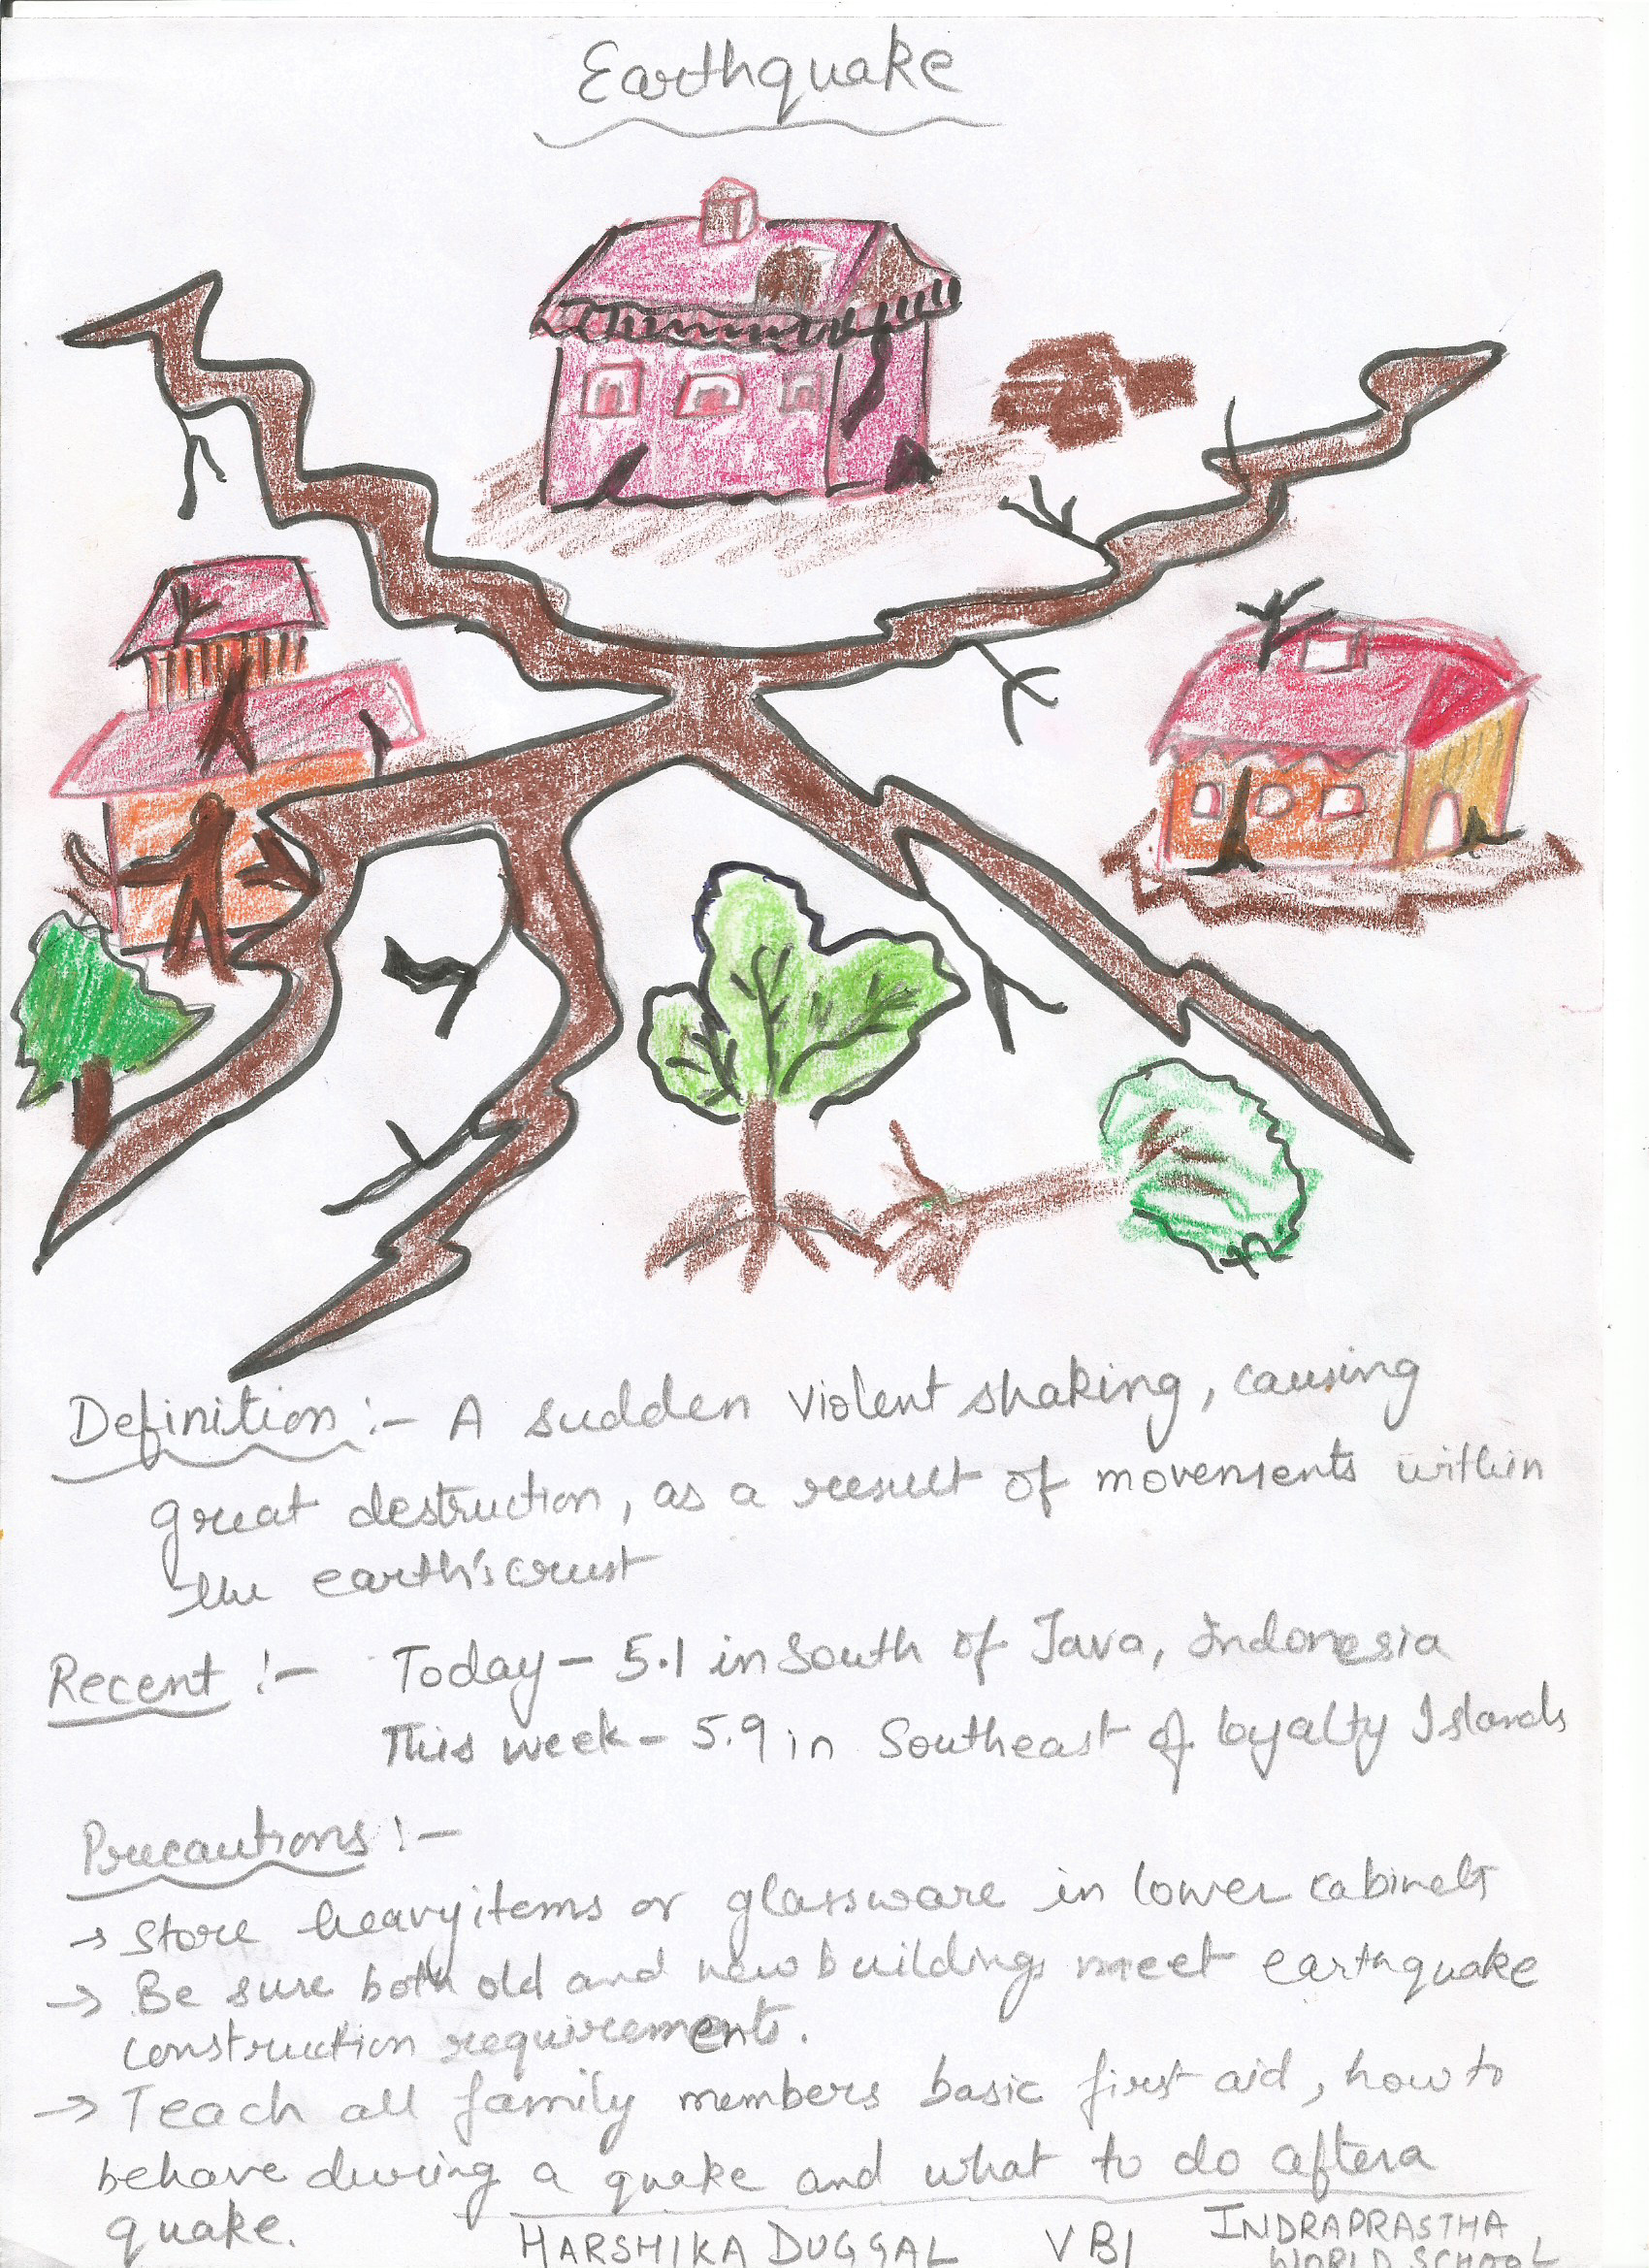 Earthquake
Definition :- A sudden violent shaking, causing
great destruction, as a result of movements within
the earth's crust
Recent :- Today - 5.1 in South of Java, Indonesia
This week - 5.9 in Southeast of Loyalty Islands
Precautions :-
→ Store heavy items or glassware in lower cabinets
→ Be sure both old and new buildings meet earthquake
construction requirements.
→ Teach all family members basic first aid, how to
behave during a quake and what to do after a
quake.
HARSHIKA DUGGAL V B1 INDRAPRASTHA
WORLD SCHOOL